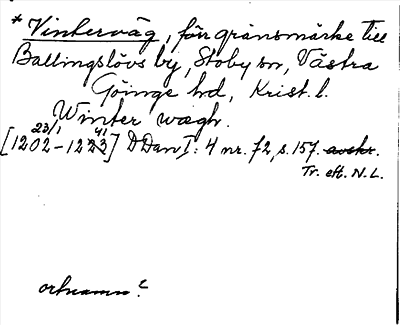 * Vinterväg, för gränsmärke till
Ballingslövs by, Stoby sn, Västra
Göinge hd, Krist. l.
Winter wægh.
[1202 23/1 - 1223 41] DDan I: 4 nr. 72, s. 157. avskr.
Tr. eft. N. L.
ortnamn?